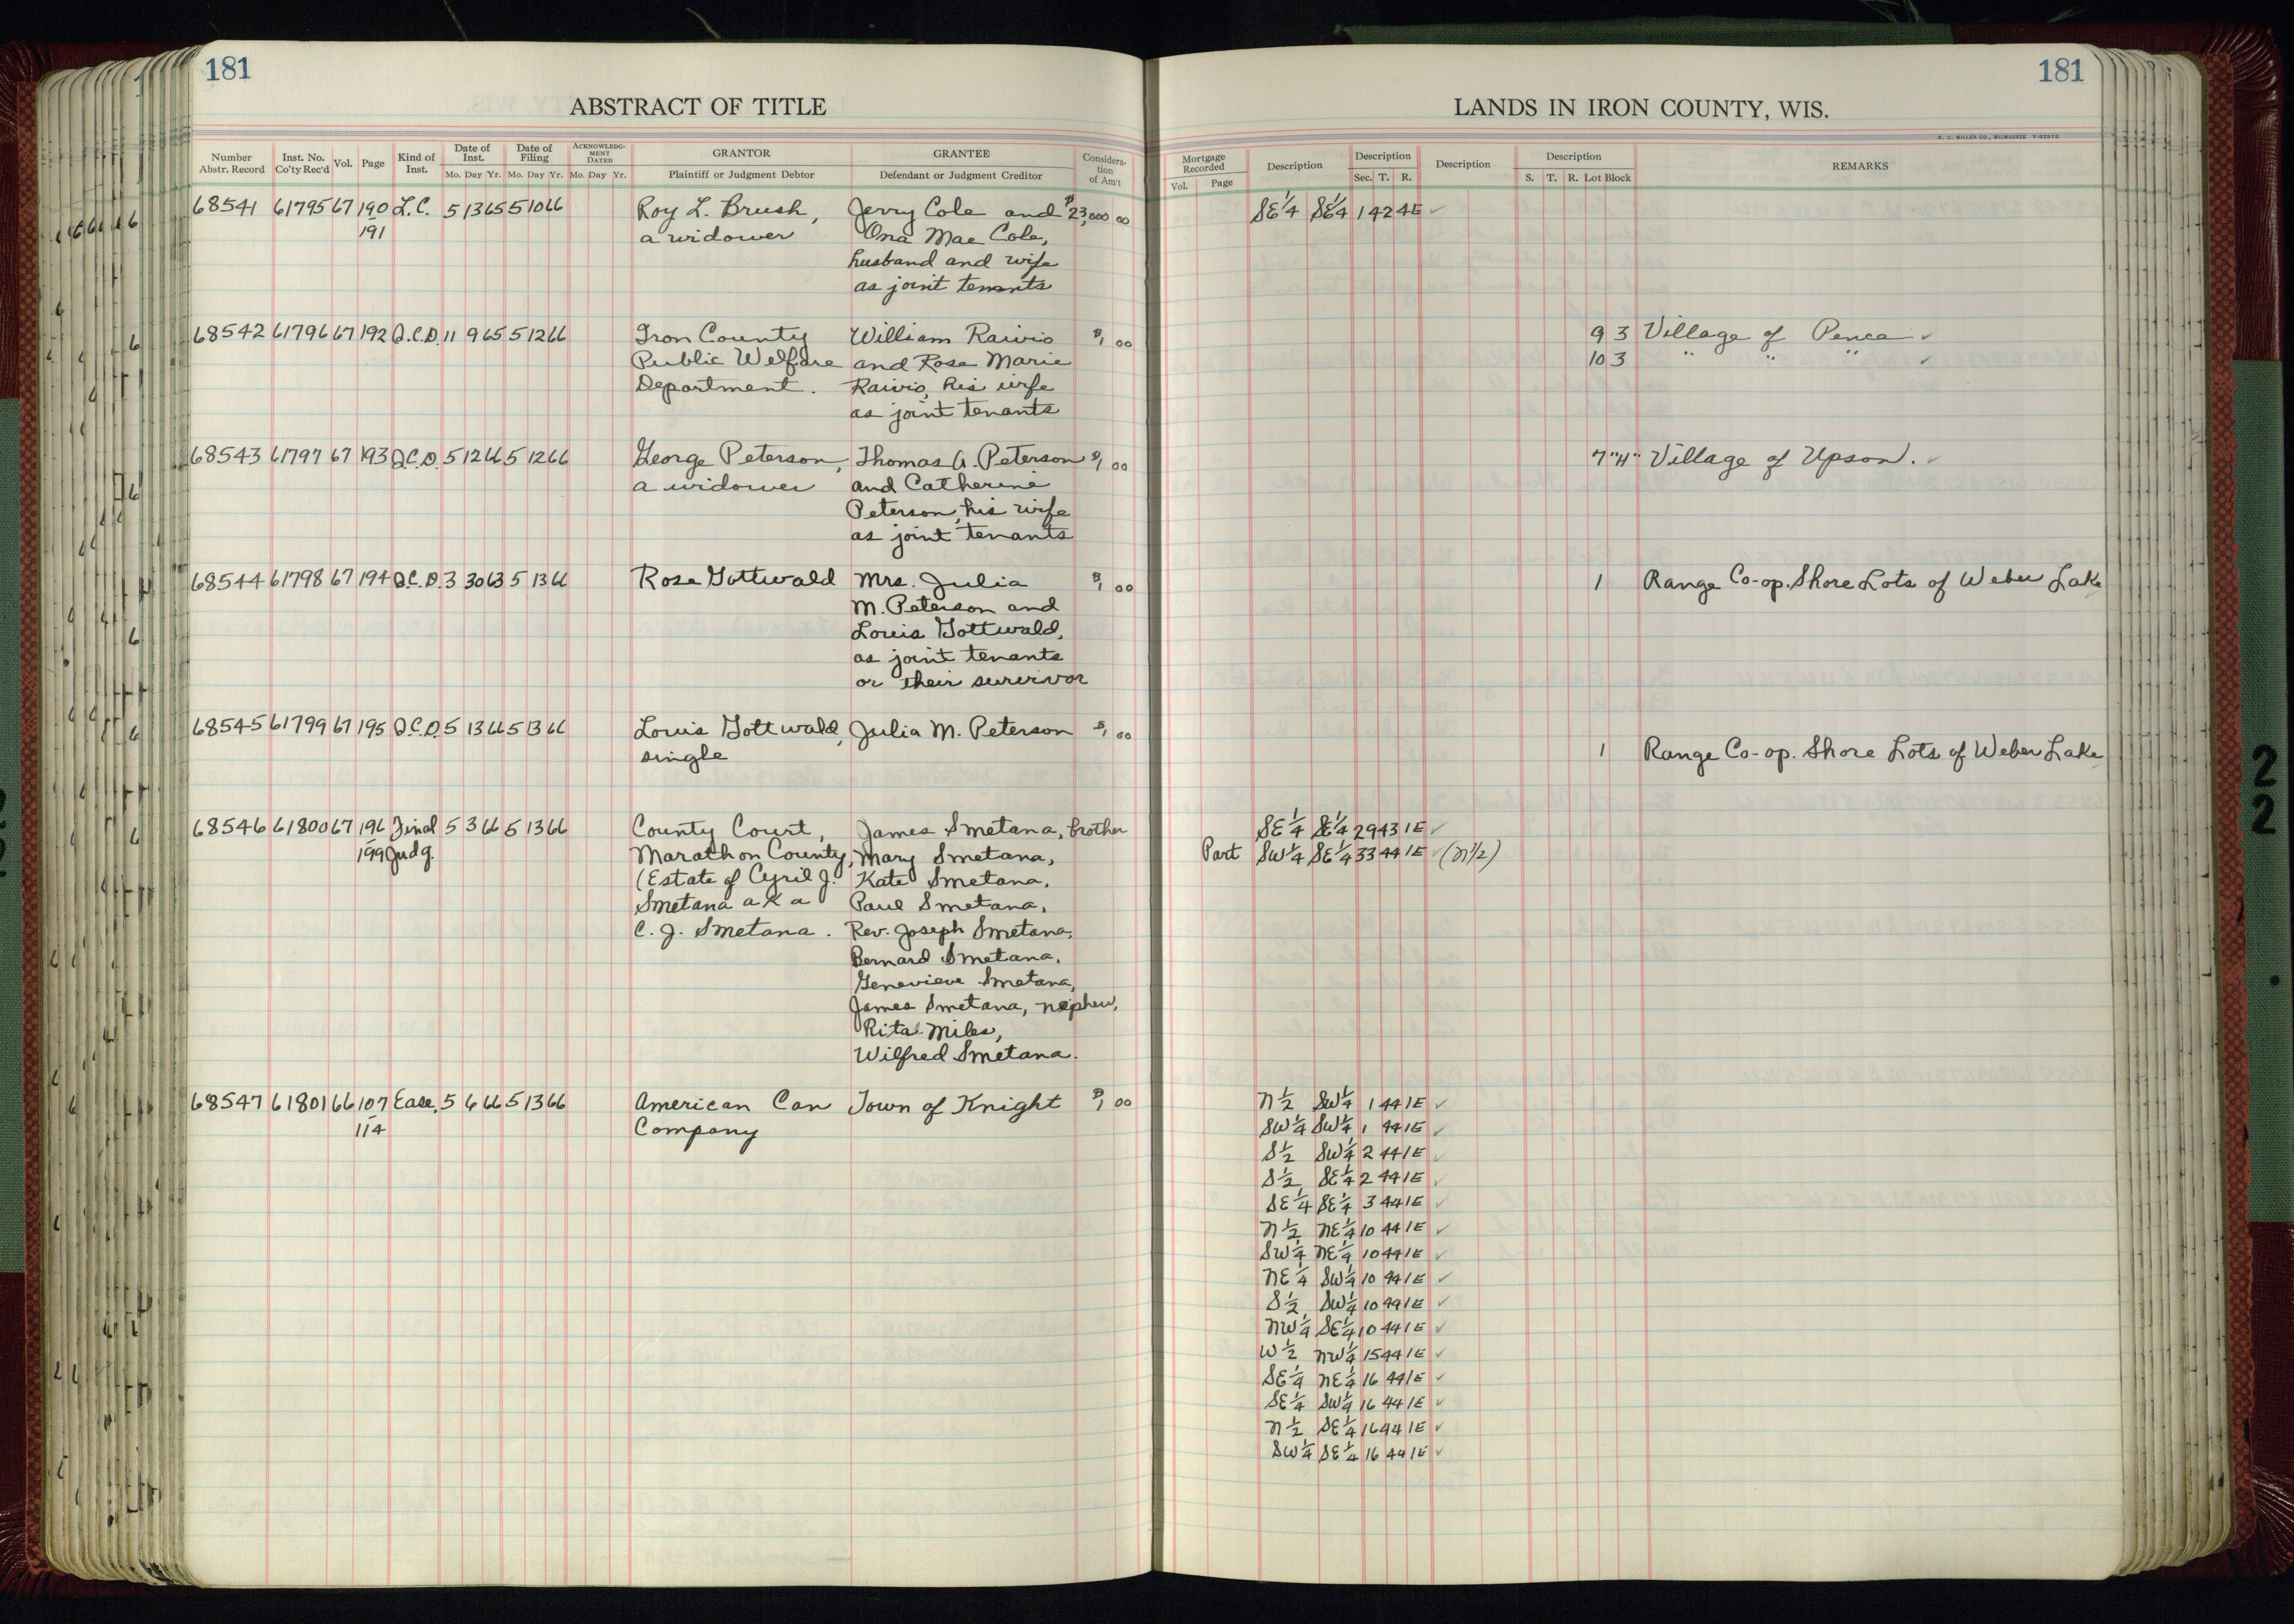 181
ABSTRACT OF TITLE
Number Abstr. Record Inst. No. Co'ty Rec'd Vol. Page Kind of Inst. Date of Inst. Mo. Day Yr. Date of Filing Mo. Day Yr. ACKNOWLEDG-MENT DATED Mo. Day Yr. GRANTOR Plaintiff or Judgment Debtor GRANTEE Defendant or Judgment Creditor Considera-tion of Am't
68541 61795 67 190 L.C. 5 13 65 5 10 66 Roy L. Brush, Jerry Cole and $23,000 00
191 a widower Ona Mae Cole,
husband and wife
as joint tenants
68542 61796 67 192 Q.C.D. 11 9 65 5 12 66 Iron County William Raivio $1 00
Public Welfare and Rose Marie
Department. Raivio, his wife
as joint tenants
68543 61797 67 193 Q.C.D. 5 12 66 5 12 66 George Peterson, Thomas A. Peterson $1 00
a widower and Catherine
Peterson, his wife
as joint tenants
68544 61798 67 194 Q.C.D. 3 30 63 5 13 66 Rose Gottwald Mrs. Julia $1 00
M. Peterson and
Louis Gottwald,
as joint tenants
or their survivor
68545 61799 67 195 Q.C.D. 5 13 66 5 13 66 Louis Gottwald, Julia M. Peterson $1 00
single
68546 61800 67 196 Final 5 3 66 5 13 66 County Court, James Smetana, brother
199 Judg. Marathon County, Mary Smetana,
(Estate of Cyril J. Kate Smetana,
Smetana a k a Paul Smetana,
C. J. Smetana. Rev. Joseph Smetana,
Bernard Smetana,
Genevieve Smetana,
James Smetana, nephew,
Rita Miles,
Wilfred Smetana.
68547 61801 66 107 Ease. 5 6 66 5 13 66 American Can Town of Knight $1 00
114 Company
181
LANDS IN IRON COUNTY, WIS.
H. C. MILLER CO., MILWAUKEE
Mortgage Recorded Vol. Page Description Description Sec. T. R. Description Description S. T. R. Lot Block REMARKS
SE 1/4 SE 1/4 1 42 4E ✓
9 3 Village of Pence ✓
10 3 " " " ✓
7 "H" Village of Upson. ✓
1 Range Co-op. Shore Lots of Weber Lake
1 Range Co-op. Shore Lots of Weber Lake
SE 1/4 SE 1/4 29 43 1E ✓
Part SW 1/4 SE 1/4 33 44 1E ✓ (N 1/2)
N 1/2 SW 1/4 1 44 1E ✓
SW 1/4 SW 1/4 1 44 1E ✓
S 1/2 SW 1/4 2 44 1E ✓
S 1/2 SE 1/4 2 44 1E ✓
SE 1/4 SE 1/4 3 44 1E ✓
N 1/2 NE 1/4 10 44 1E ✓
SW 1/4 NE 1/4 10 44 1E ✓
NE 1/4 SW 1/4 10 44 1E ✓
S 1/2 SW 1/4 10 44 1E ✓
NW 1/4 SE 1/4 10 44 1E ✓
W 1/2 NW 1/4 15 44 1E ✓
SE 1/4 NE 1/4 16 44 1E ✓
SE 1/4 SW 1/4 16 44 1E ✓
N 1/2 SE 1/4 16 44 1E ✓
SW 1/4 SE 1/4 16 44 1E ✓
2
2